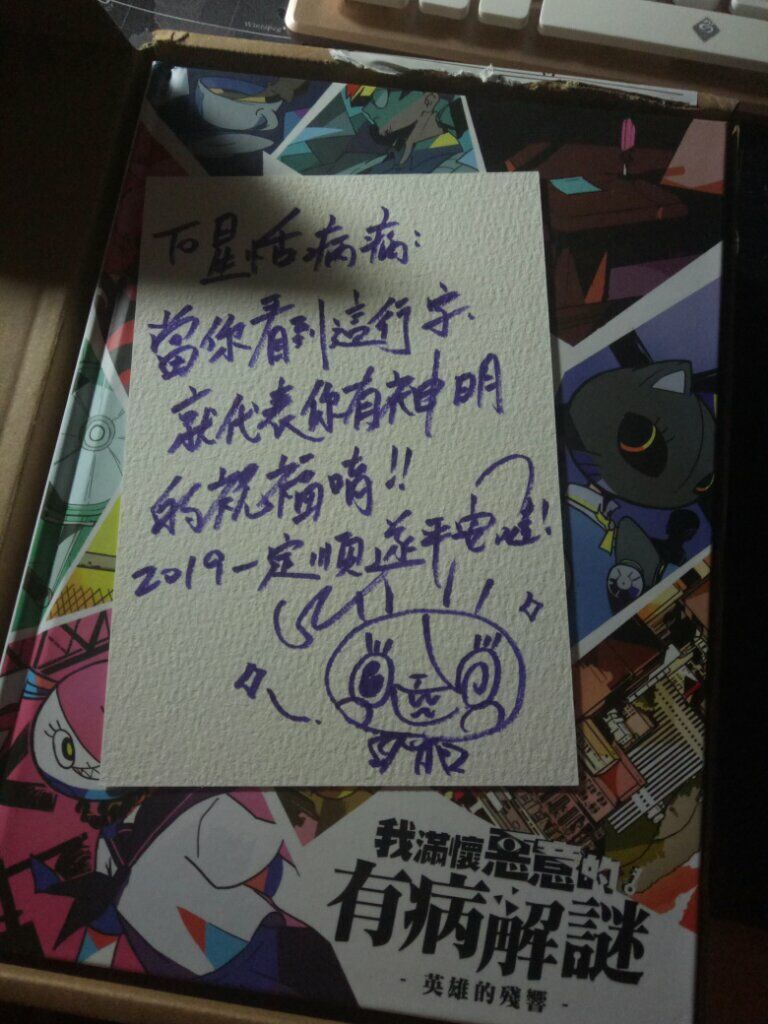 To 星恬病病:
當你看到這行字、
就代表你有神明
的祝福唷!!
2019一定順遂平安啦!
我滿懷惡意的。
有病解謎
- 英雄的殘響 -